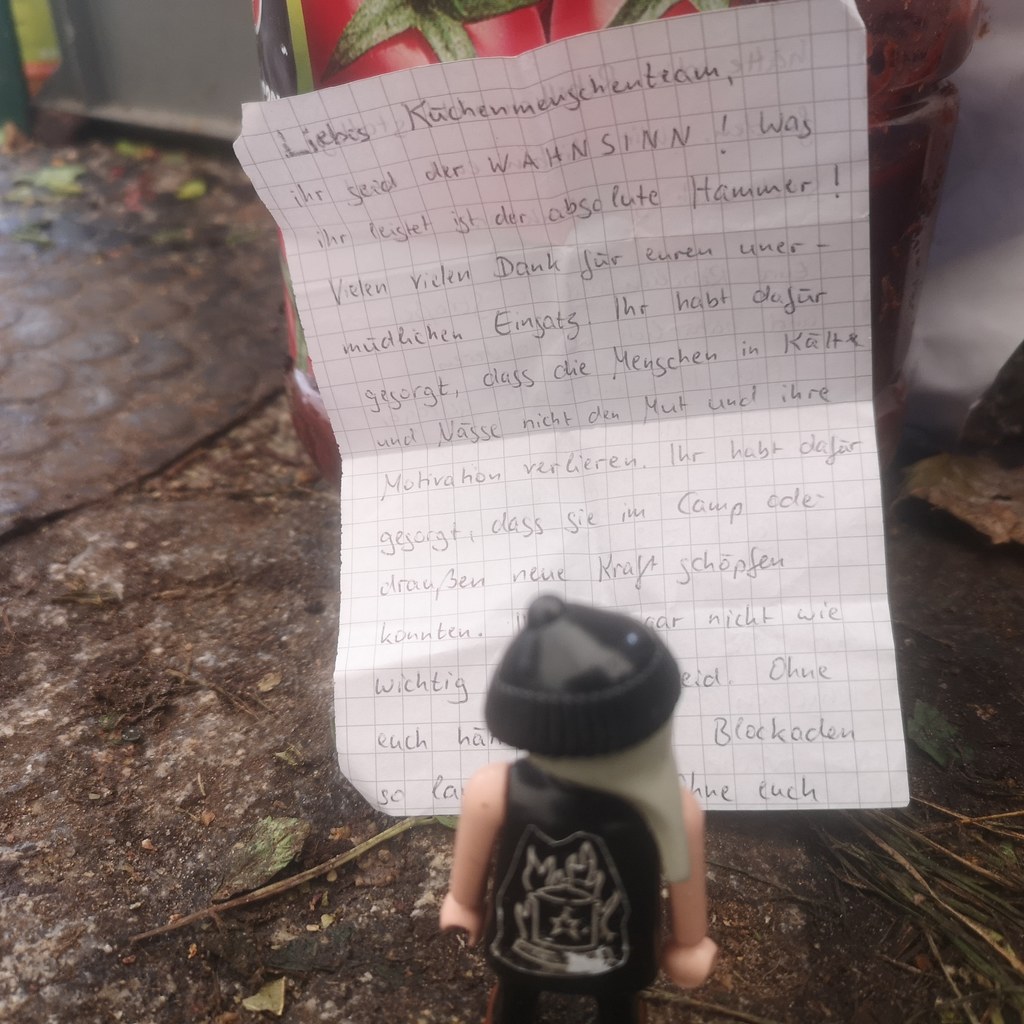 Liebis Küchenmenschenteam,
ihr seid der WAHNSINN! Was
ihr leistet ist der absolute Hammer!
Vielen vielen Dank für euren uner-
müdlichen Einsatz. Ihr habt dafür
gesorgt, dass die Menschen in Kälte
und Nässe nicht den Mut und ihre
Motivation verlieren. Ihr habt dafür
gesorgt, dass sie im Camp oder
draußen neue Kraft schöpfen
konnten. gar nicht wie
wichtig Ohne
euch Blockaden
so euch